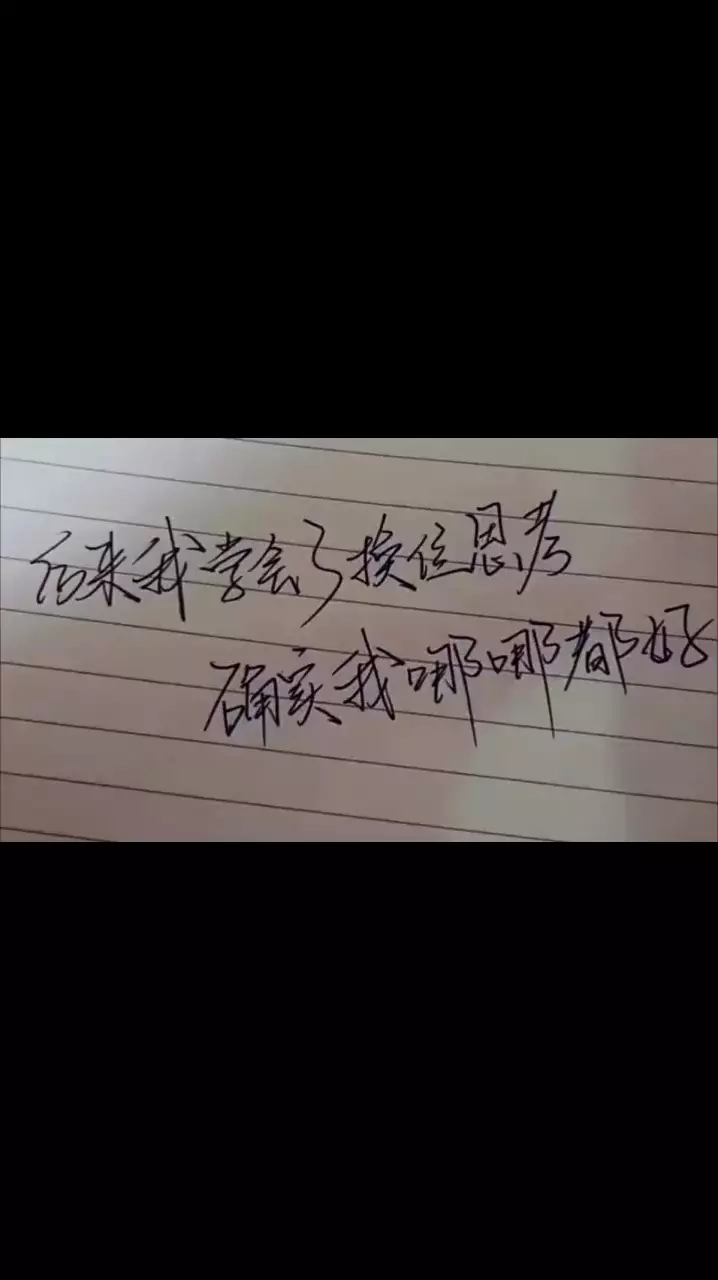 后来我学会了换位思考
确实我哪哪都好